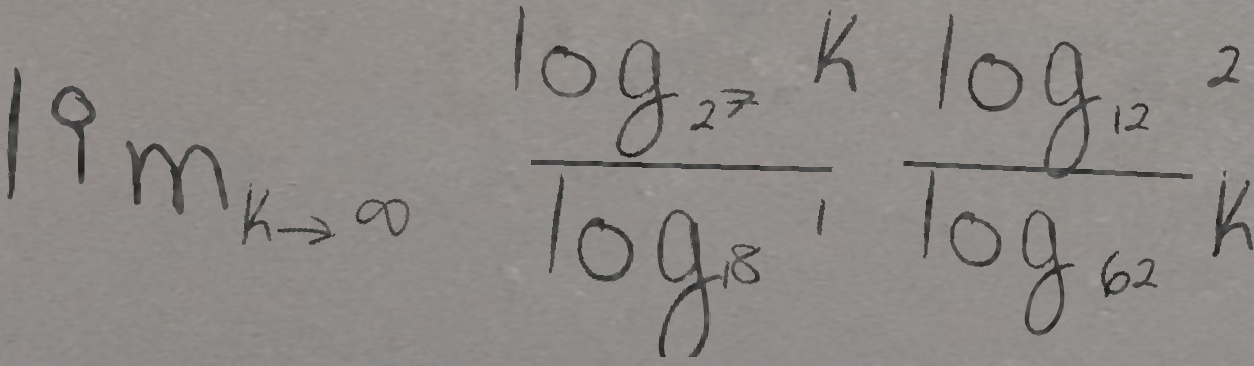 lim_{k→∞} \frac{log_{27} k}{log_{18} 1} \frac{log_{12} 2}{log_{62} k}